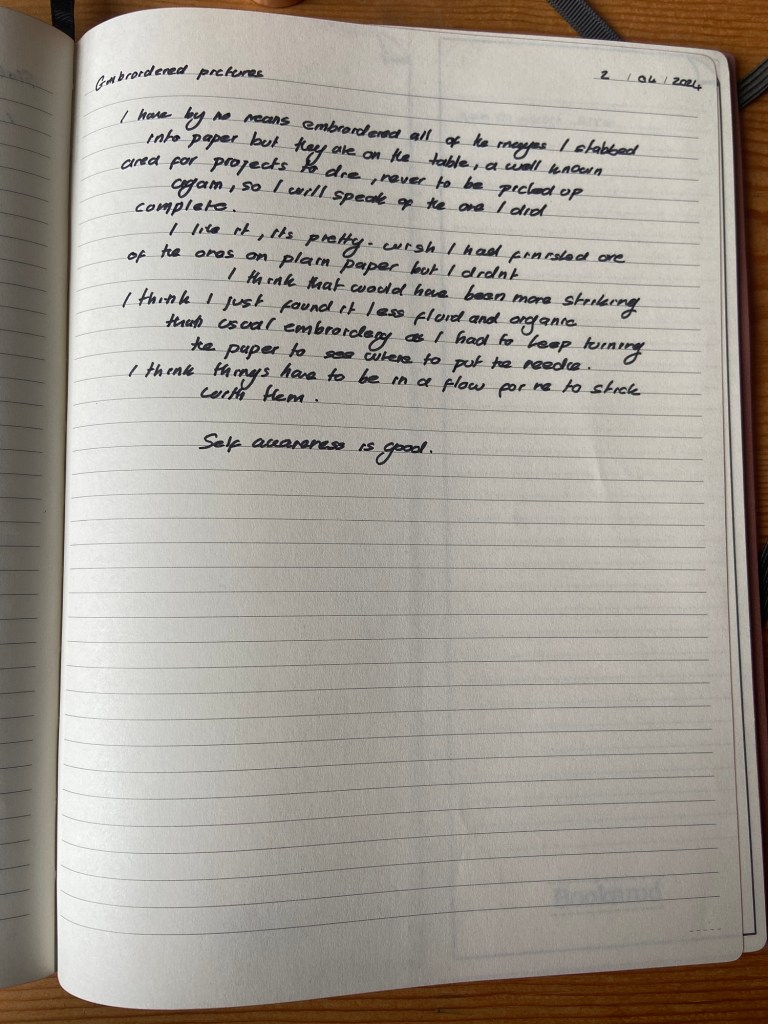 Embroidered pictures
2 / 04 / 2024
I have by no means embroidered all of the images I stabbed
into paper but they are on the table, a well known
area for projects to die, never to be picked up
again, so I will speak of the one I did
complete.
I like it, its pretty. wish I had finished one
of the ones on plain paper but I didnt
I think that would have been more striking
I think I just found it less fluid and organic
than usual embroidery as I had to keep turning
the paper to see where to put the needle.
I think things have to be in a flow for me to stick
with them.
Self awareness is good.